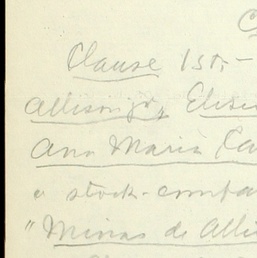 C
Clause 1st.-
Allison jr, Elise
Ana Maria Ca
a stock-compa
"Minas de Alli